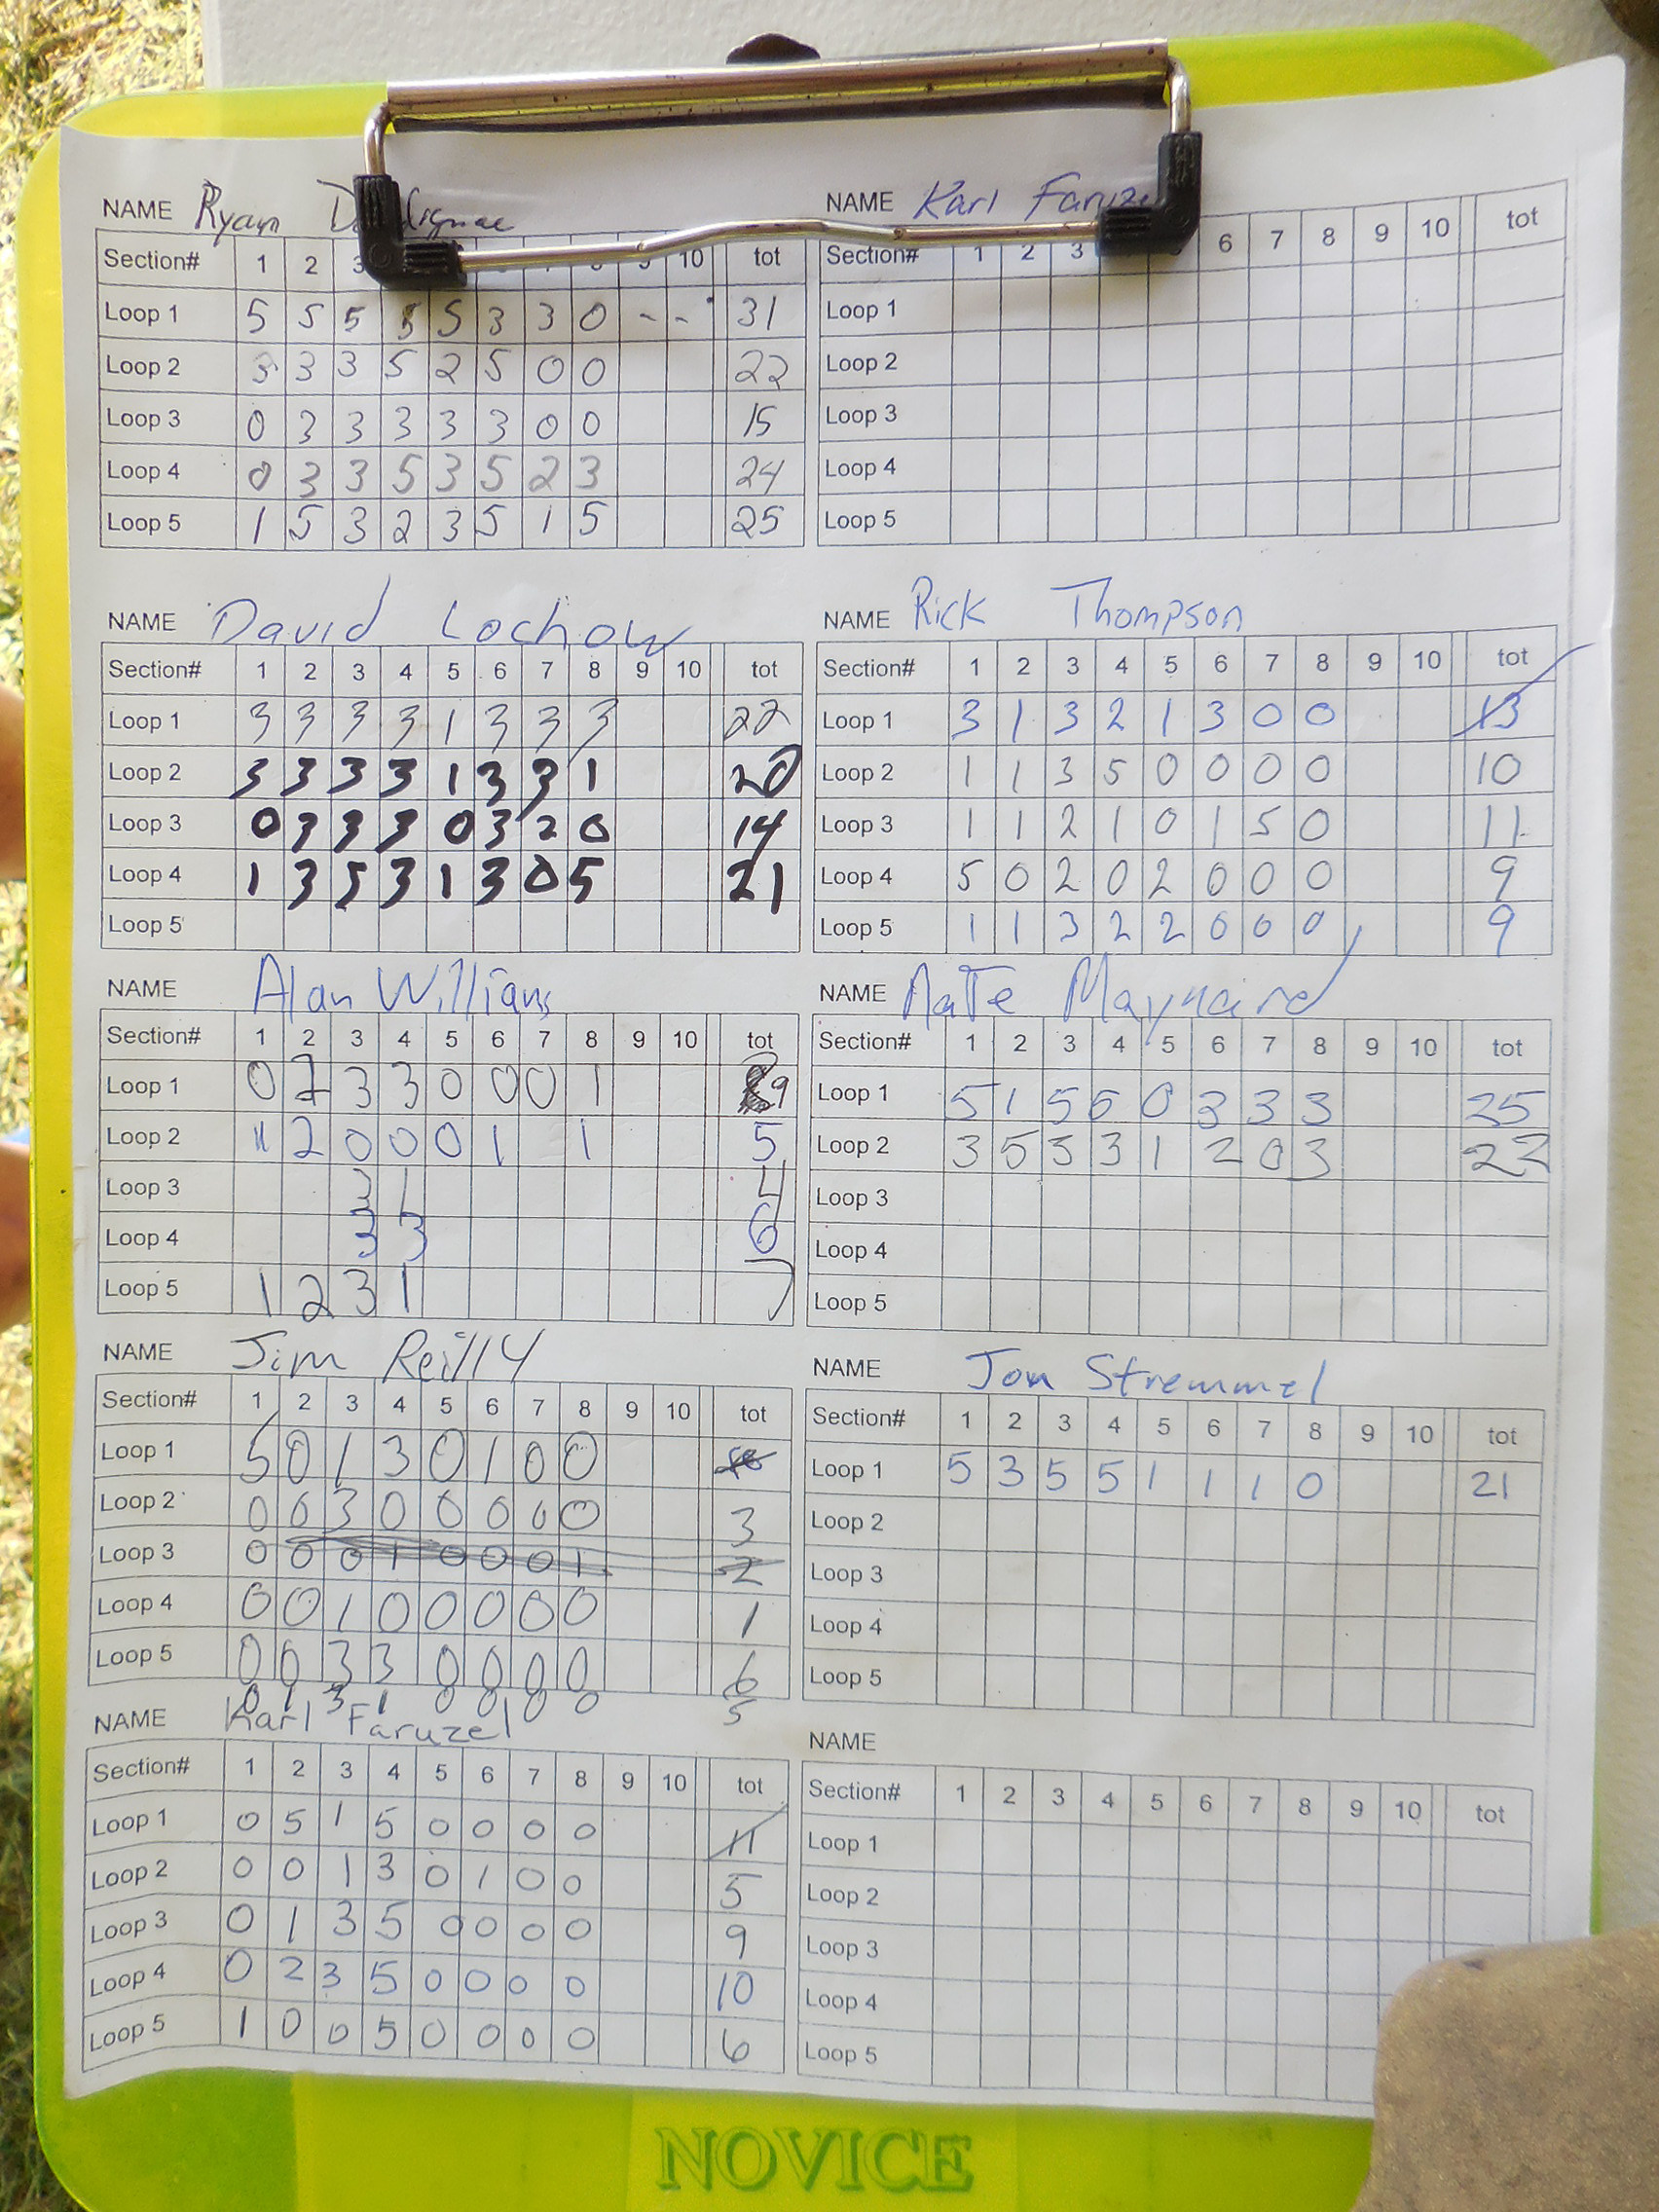 NAME Ryan
Section# 1 2 3 10 tot
Loop 1 5 5 5 5 5 3 3 0 - - 31
Loop 2 3 3 3 5 2 5 0 0 22
Loop 3 0 3 3 3 3 3 0 0 15
Loop 4 0 3 3 5 3 5 2 3 24
Loop 5 1 5 3 2 3 5 1 5 25
NAME Karl
Section# 1 2 3 6 7 8 9 10 tot
Loop 1
Loop 2
Loop 3
Loop 4
Loop 5
NAME David Lochow
Section# 1 2 3 4 5 6 7 8 9 10 tot
Loop 1 3 3 3 3 1 3 3 3 22
Loop 2 3 3 3 3 1 3 3 1 20
Loop 3 0 3 3 3 0 3 2 0 14
Loop 4 1 3 5 3 1 3 0 5 21
Loop 5
NAME Rick Thompson
Section# 1 2 3 4 5 6 7 8 9 10 tot
Loop 1 3 1 3 2 1 3 0 0 13
Loop 2 1 1 3 5 0 0 0 0 10
Loop 3 1 1 2 1 0 1 5 0 11
Loop 4 5 0 2 0 2 0 0 0 9
Loop 5 1 1 3 2 2 0 0 0 9
NAME Alan Williams
Section# 1 2 3 4 5 6 7 8 9 10 tot
Loop 1 0 2 3 3 0 0 0 1 9
Loop 2 1 2 0 0 0 1 1 5
Loop 3 3 1 4
Loop 4 3 3 6
Loop 5 1 2 3 1 7
NAME Nate Maynard
Section# 1 2 3 4 5 6 7 8 9 10 tot
Loop 1 5 1 5 5 0 3 3 3 25
Loop 2 3 5 5 3 1 2 0 3 22
Loop 3
Loop 4
Loop 5
NAME Jim Reilly
Section# 1 2 3 4 5 6 7 8 9 10 tot
Loop 1 5 0 1 3 0 1 0 0 10
Loop 2 0 0 3 0 0 0 0 0 3
Loop 3 0 0 0 1 0 0 0 1 2
Loop 4 0 0 1 0 0 0 0 0 1
Loop 5 0 0 3 3 0 0 0 0 6
0 1 3 1 0 0 0 0 5
NAME Jon Stremmel
Section# 1 2 3 4 5 6 7 8 9 10 tot
Loop 1 5 3 5 5 1 1 1 0 21
Loop 2
Loop 3
Loop 4
Loop 5
NAME Karl Faruzel
Section# 1 2 3 4 5 6 7 8 9 10 tot
Loop 1 0 5 1 5 0 0 0 0 11
Loop 2 0 0 1 3 0 1 0 0 5
Loop 3 0 1 3 5 0 0 0 0 9
Loop 4 0 2 3 5 0 0 0 0 10
Loop 5 1 0 0 5 0 0 0 0 6
NAME
Section# 1 2 3 4 5 6 7 8 9 10 tot
Loop 1
Loop 2
Loop 3
Loop 4
Loop 5
NOVICE